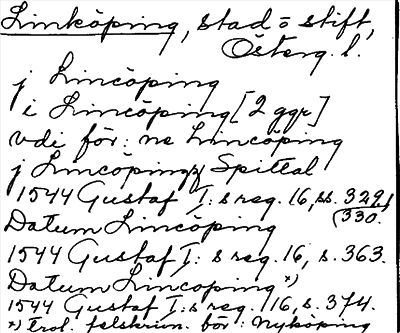 Linköping, stad o stift,
Österg. l.
j Lincöping
i Lincöping [2 ggr]
vdi för: ne Lincöping
j Lincöpingz Spittal
1544 Gustaf I: s reg. 16, ss. 329,
(330.
Datum Lincöping
1544 Gustaf I: s reg. 16, s. 363.
Datum Lincoping x)
1544 Gustaf I: s reg. 16, s. 374.
x) Trol. felskrivn. för: Nyköping